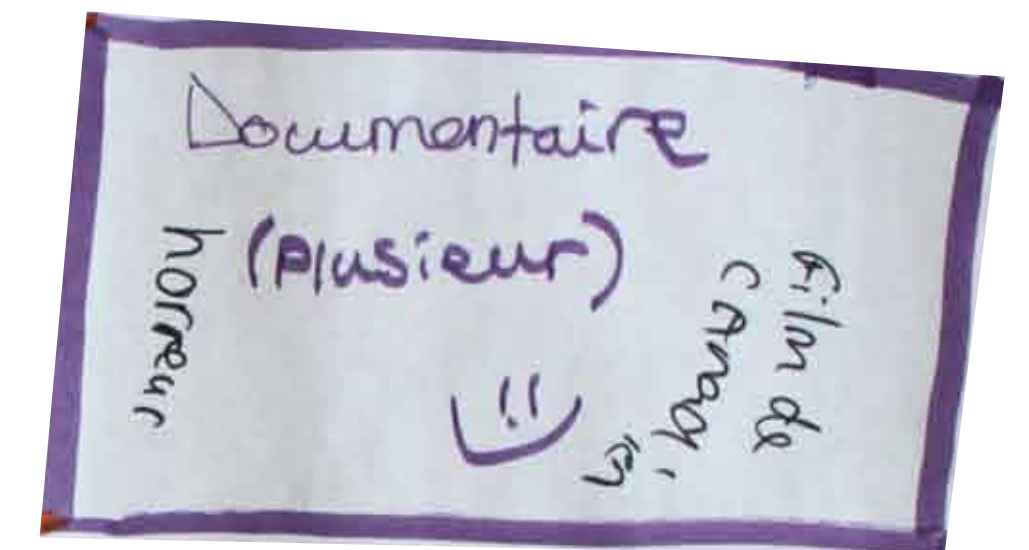 Documentaire
(plusieur)
horreur
Film de